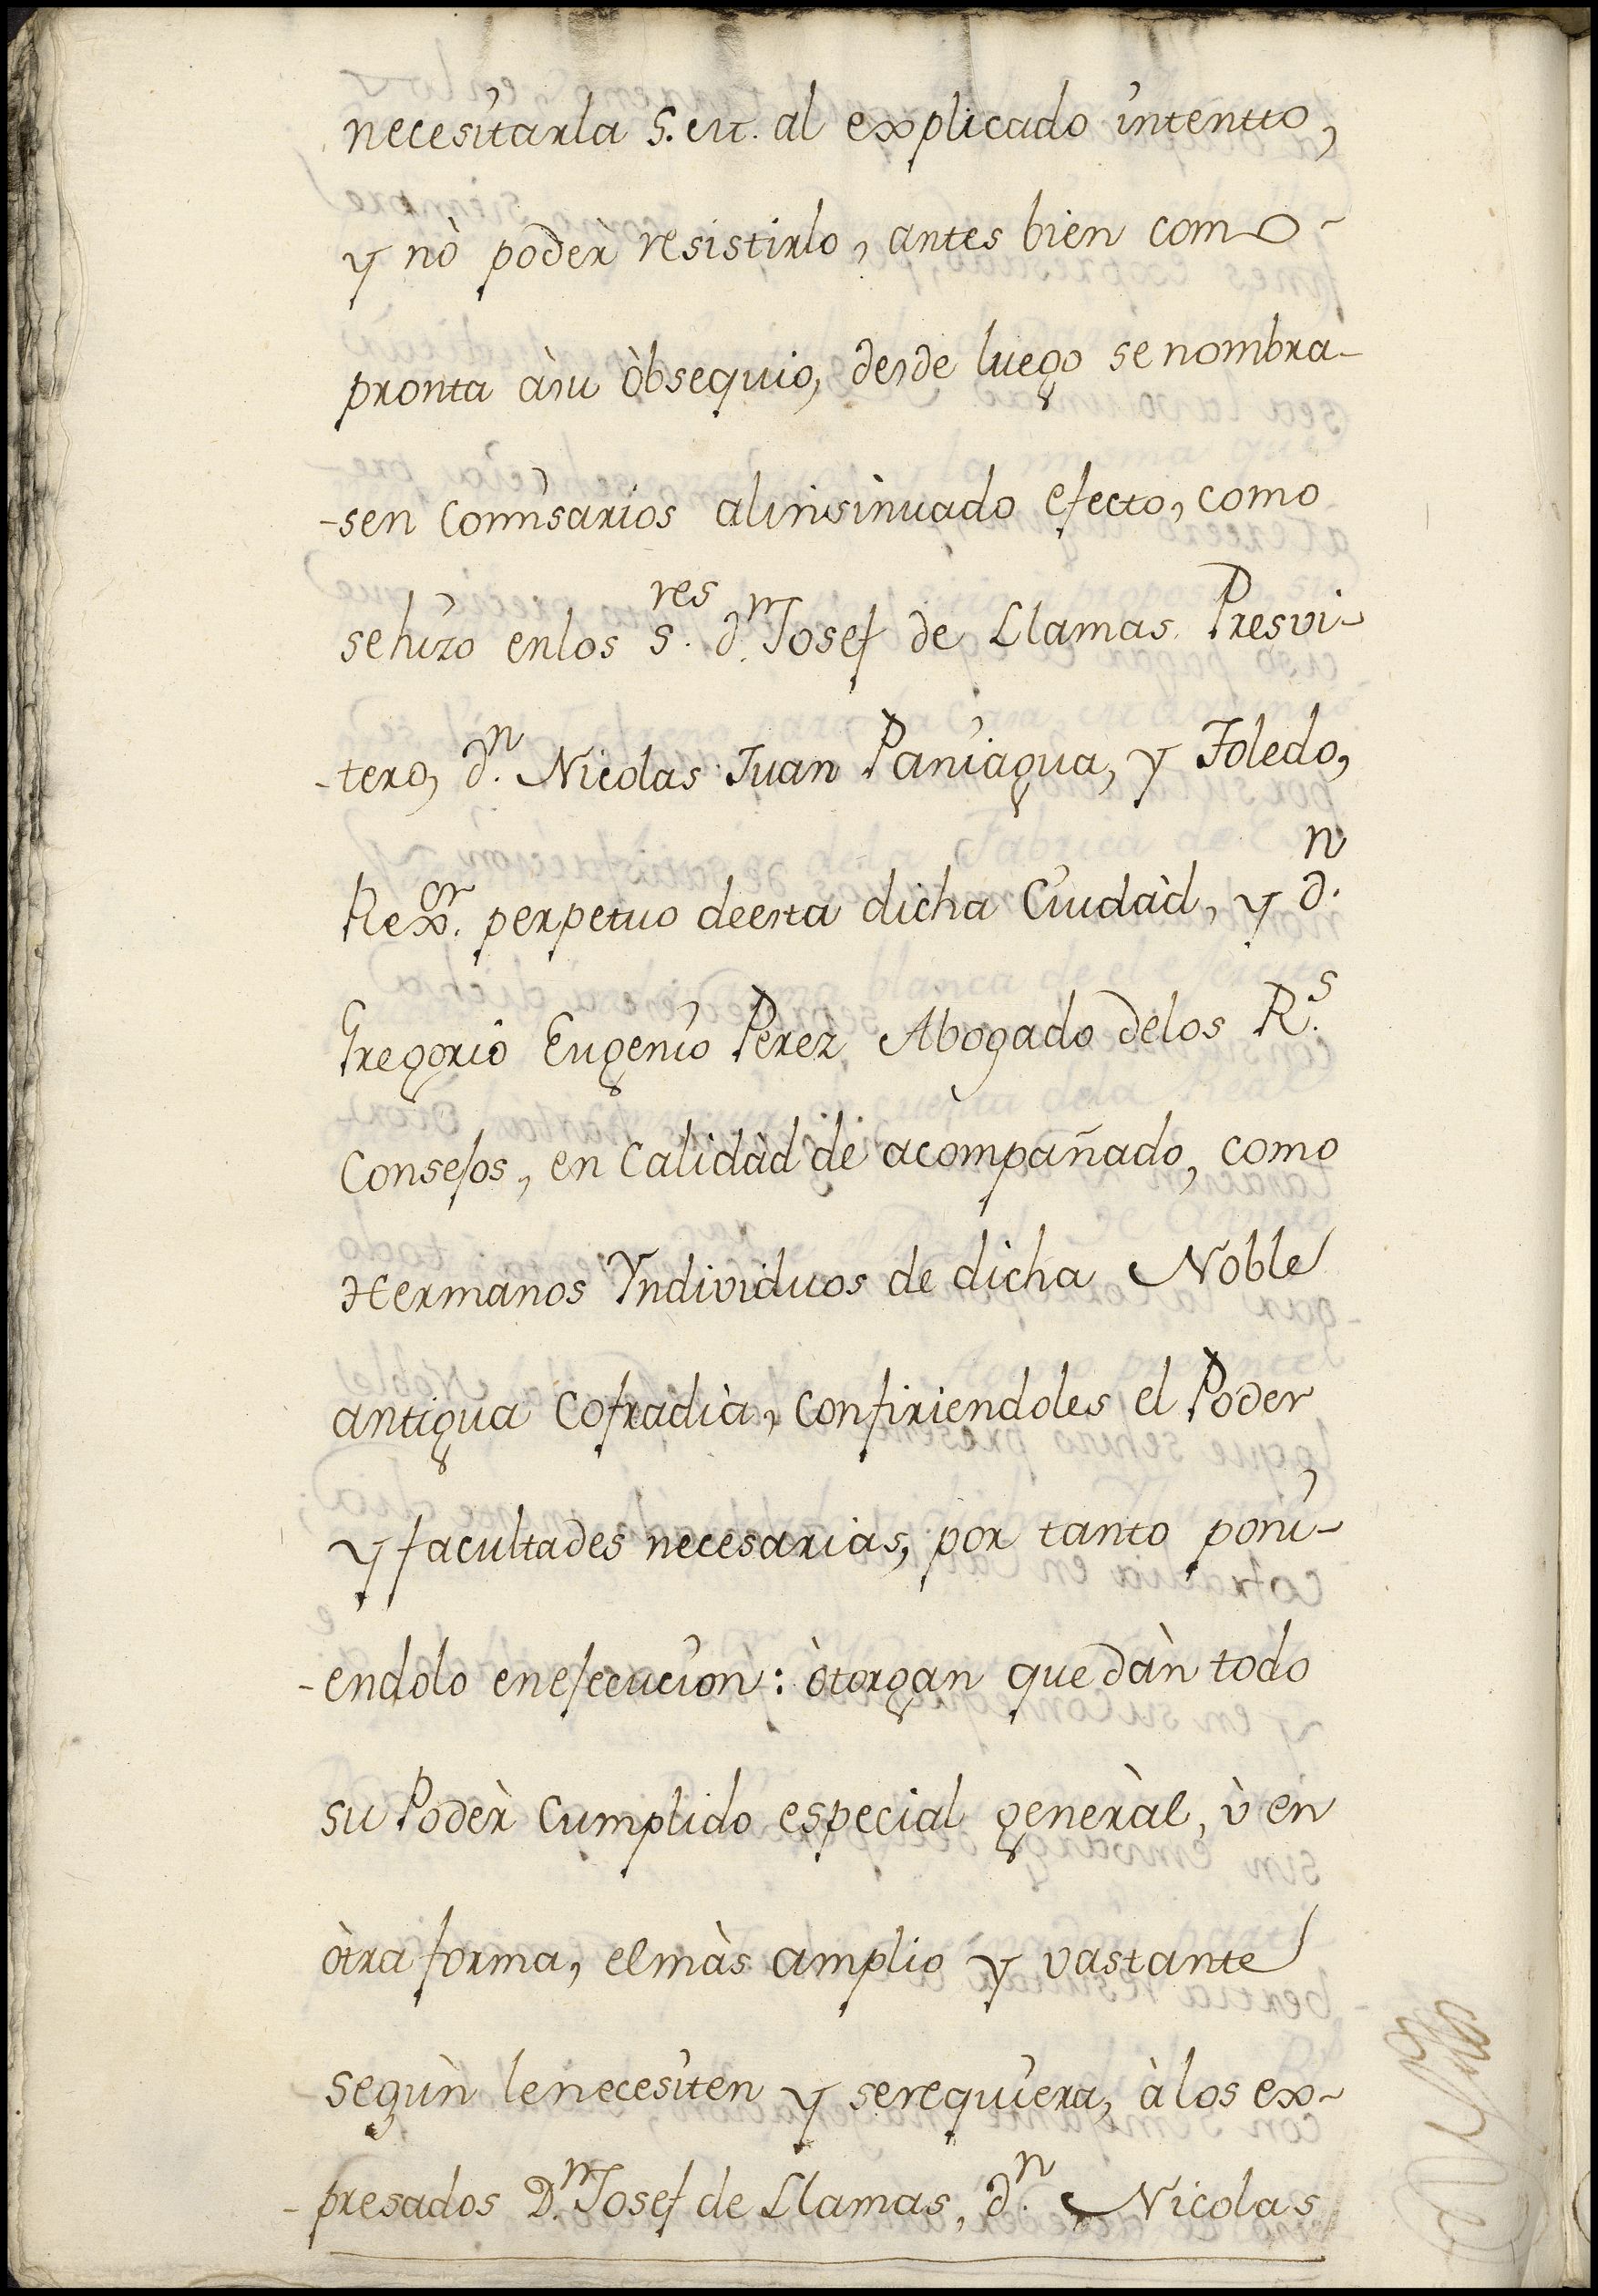 necesitarla S. M. al explicado intentto,
y nò podèr resistirlo, antes bien como
pronta àsu òbsequio, desde luego se nombra-
-sen Comisarios alinsinuado efecto, como
sehizo enlos S.res d.n Josef de Llamas Presvi-
-tero, d.n Nicolas Juan Paniagua, y Toledo,
Rex.or perpetuo deesta dicha Ciudàd, y d.n
Gregorio Eugenio Perez Abogado delos R.s
Consejos, en Calidàd de acompañado, como
Hermanos Yndividuos de dicha Noble
antigua Cofradìa, confiriendoles el Poder
y facultades necesarias, por tanto poni-
-endolo enejecucion: òtorgan que dàn todo
su Podèr Cumplido especial generàl, ù en
òtra forma, elmàs amplio y vastante
segùn lenecesiten y serequiera, àlos ex-
-presados D.n Josef de Llamas, d.n Nicolas